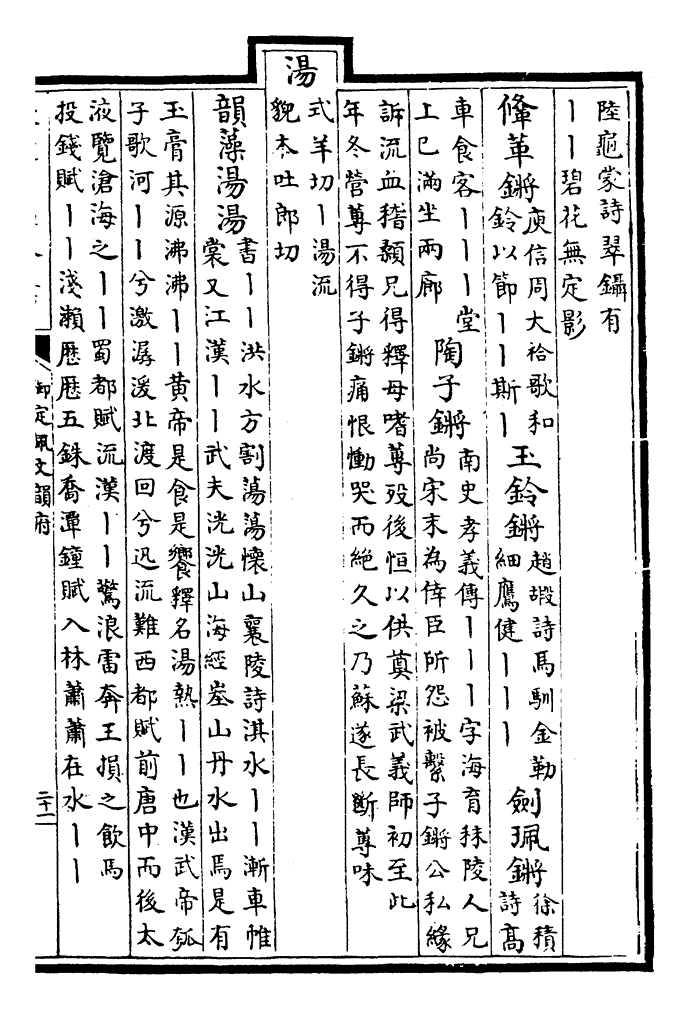 陸龜蒙詩翠鑷有
丨丨碧花無定影
鞗革鏘
庾信周大祫歌和
鈴以節丨丨斯丨
玉鈴鏘
趙嘏詩馬馴金勒
細鷹健丨丨丨
劍珮鏘
徐積
詩高
車食客丨丨丨堂
上已滿坐兩廊
陶子鏘
南史孝義傳丨丨丨字海育秣陵人兄
尚宋末為倖臣所怨被繫子鏘公私緣
訴流血稽顙兄得釋母嗜蓴歿後恒以供奠梁武義師初至此
年冬營蓴不得子鏘痛恨慟哭而絶久之乃蘇遂長斷蓴味
湯
式羊切丨湯流
貌本吐郎切
韻藻湯湯
書丨丨洪水方割蕩蕩懷山襄陵詩淇水丨丨漸車帷
裳又江漢丨丨武夫洸洸山海經峚山丹水出焉是有
玉膏其源沸沸丨丨黄帝是食是饗釋名湯熱丨丨也漢武帝瓠
子歌河丨丨兮激潺湲北渡回兮迅流難西都賦前唐中而後太
液覽滄海之丨丨蜀都賦流漢丨丨驚浪雷奔王損之飲馬
投錢賦丨丨淺瀨歷歷五銖喬潭鐘賦入林蕭蕭在水丨丨
御定佩文韻府
二十一